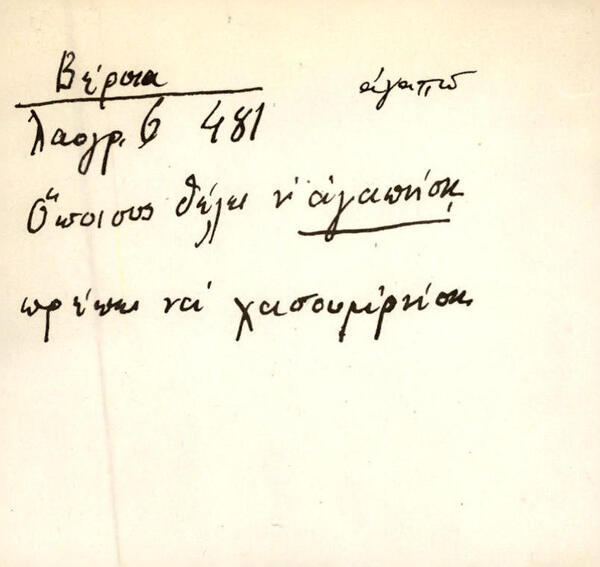 Βέροια ἀγαπῶ
Λαογρ. 6 481
Ὅποιους θέλει ν' ἀγαπήσῃ
πρέπει νά χασουμιρήσῃ